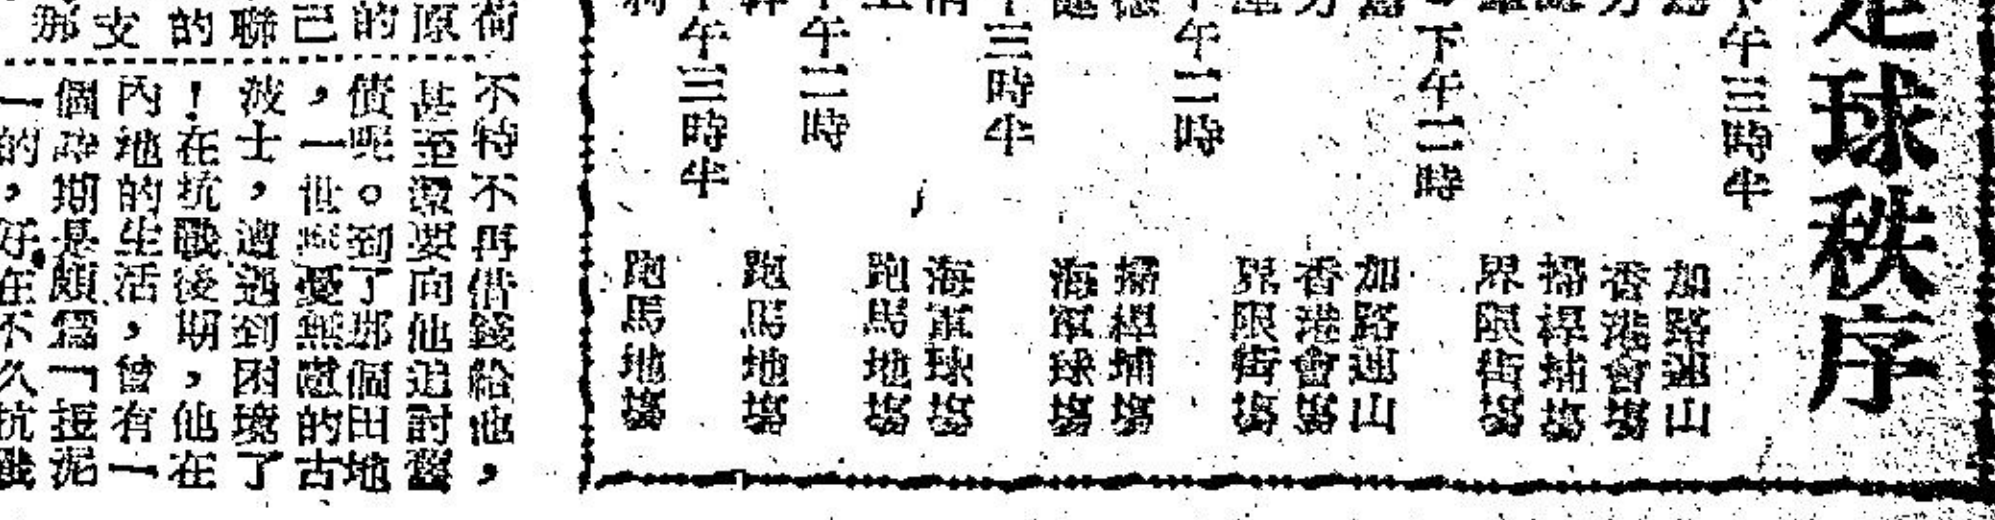 足球秩序
下午三時半
加路連山
香港會場
掃桿埔場
界限街場
下午二時
加路連山
香港會場
界限街場
下午二時
掃桿埔場
海軍球場
午三時半
海軍球場
跑馬地場
下午二時
跑馬地場
下午三時半
跑馬地場
荷
原
的
己
聯
的
支
那
不特不再借錢給他，
甚至還要向他追討舊
債呢。到了那個田地
，一世無憂無慮的古
波士，遭遇到困境了
！在抗戰後期，他在
內地的生活，曾有一
個時期是頗爲「拖泥
一的，好在不久抗戰